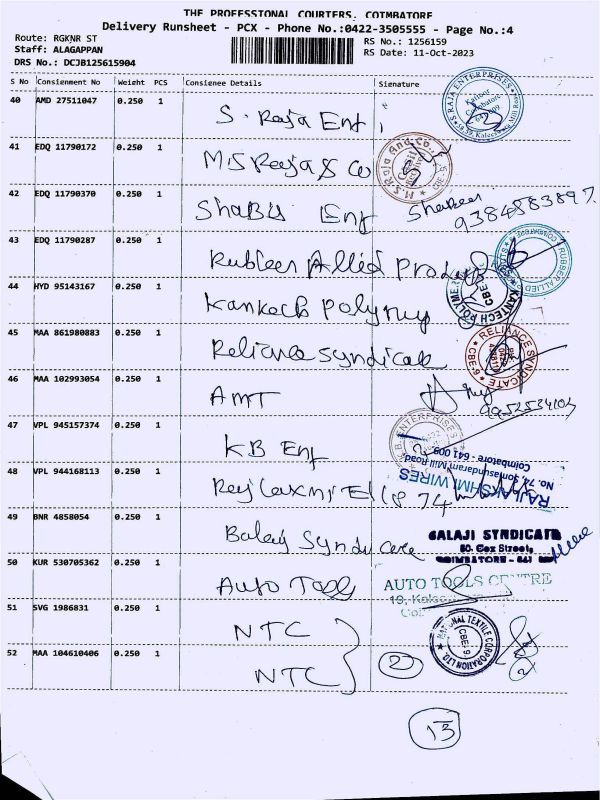 THE PROFESSIONAL COURIERS, COIMBATORE
Delivery Runsheet - PCX - Phone No.:0422-3505555 - Page No.:4
Route: RGKNR ST
Staff: ALAGAPPAN
DRS No.: DCJB125615904
RS No.: 1256159
RS Date: 11-Oct-2023
S No Consignment No Weight PCS Consignee Details Signature
40 AMD 27511047 0.250 1 S. Raja Ent
S. RAJA ENTERPRISES
41 EDQ 11790172 0.250 1 M.S Raja & Co
M.S. Raja And Co.
42 EDQ 11790370 0.250 1 Shabu Ent
43 EDQ 11790287 0.250 1 Rubber Allied Products
RUBBER ALLIED
44 HYD 95143167 0.250 1 Kantech Polymer
KANTECH POLYMER
CBE
45 MAA 861980883 0.250 1 Reliance Syndicate
RELIANCE SYNDICATE
CBE-9
46 MAA 102993054 0.250 1 AMT
47 VPL 945157374 0.250 1 KB Ent
K.B. ENTERPRISES
48 VPL 944168113 0.250 1
RAJLAKSHMI WIRES
No. 74, Somasundaram Mill Road
Coimbatore - 641 009
49 BNR 4858054 0.250 1 Balaji Syndicate
BALAJI SYNDICATE
80. Cox Street,
50 KUR 530705362 0.250 1 Auto Tool
AUTO TOOLS CENTRE
51 SVG 1986831 0.250 1 NTC
NATIONAL TEXTILE CORPORATION LTD.
CBE-9
52 MAA 104610406 0.250 1 NTC
2
2
13